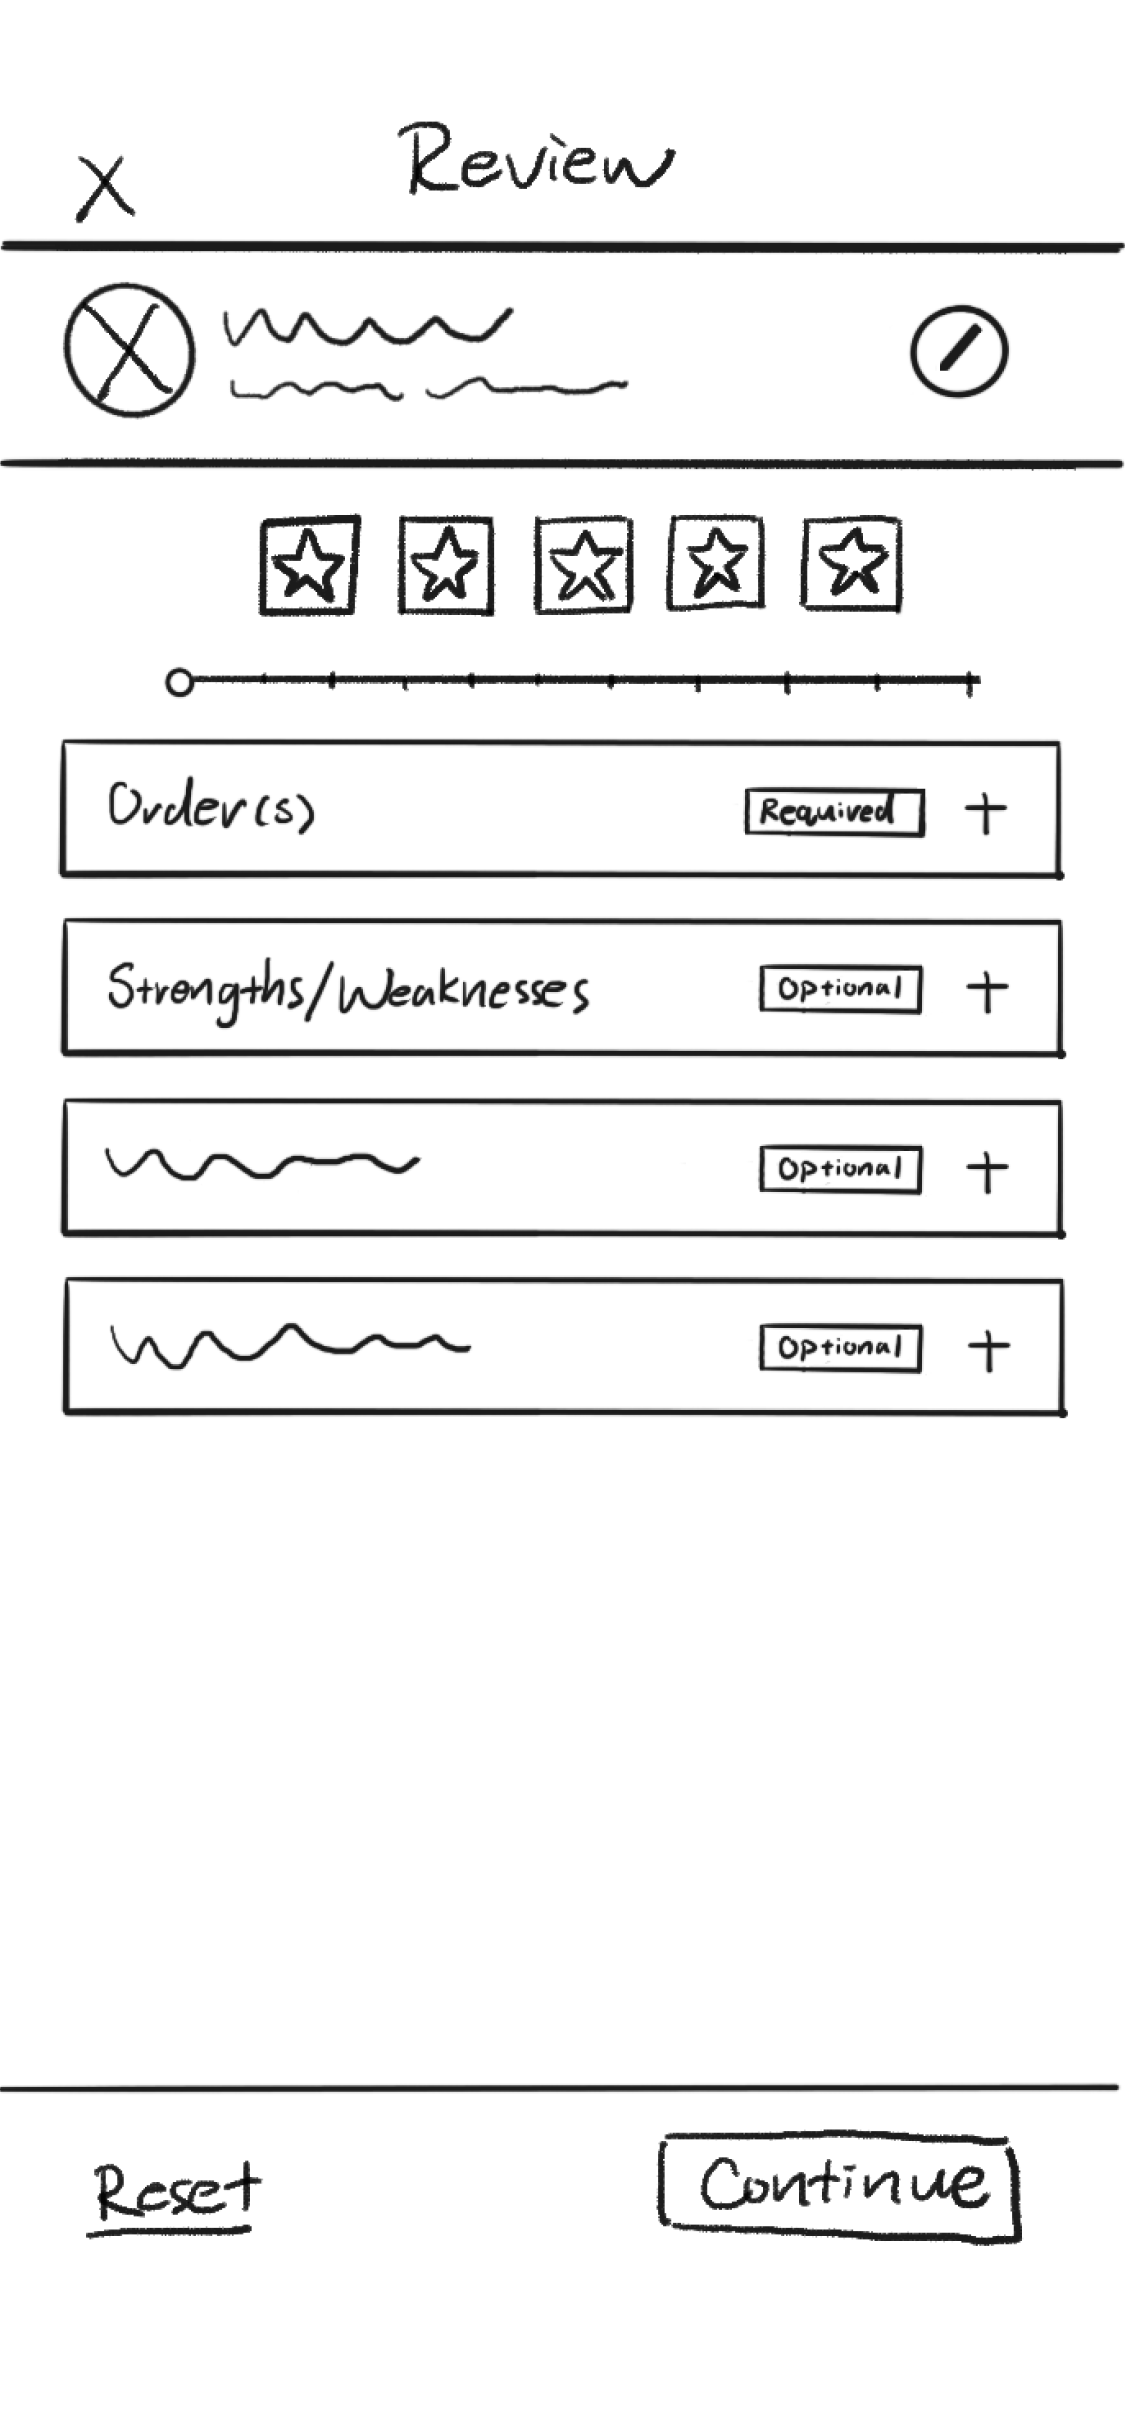 X
Review
Order(s) Required +
Strengths/Weaknesses Optional +
Optional +
Optional +
Reset Continue